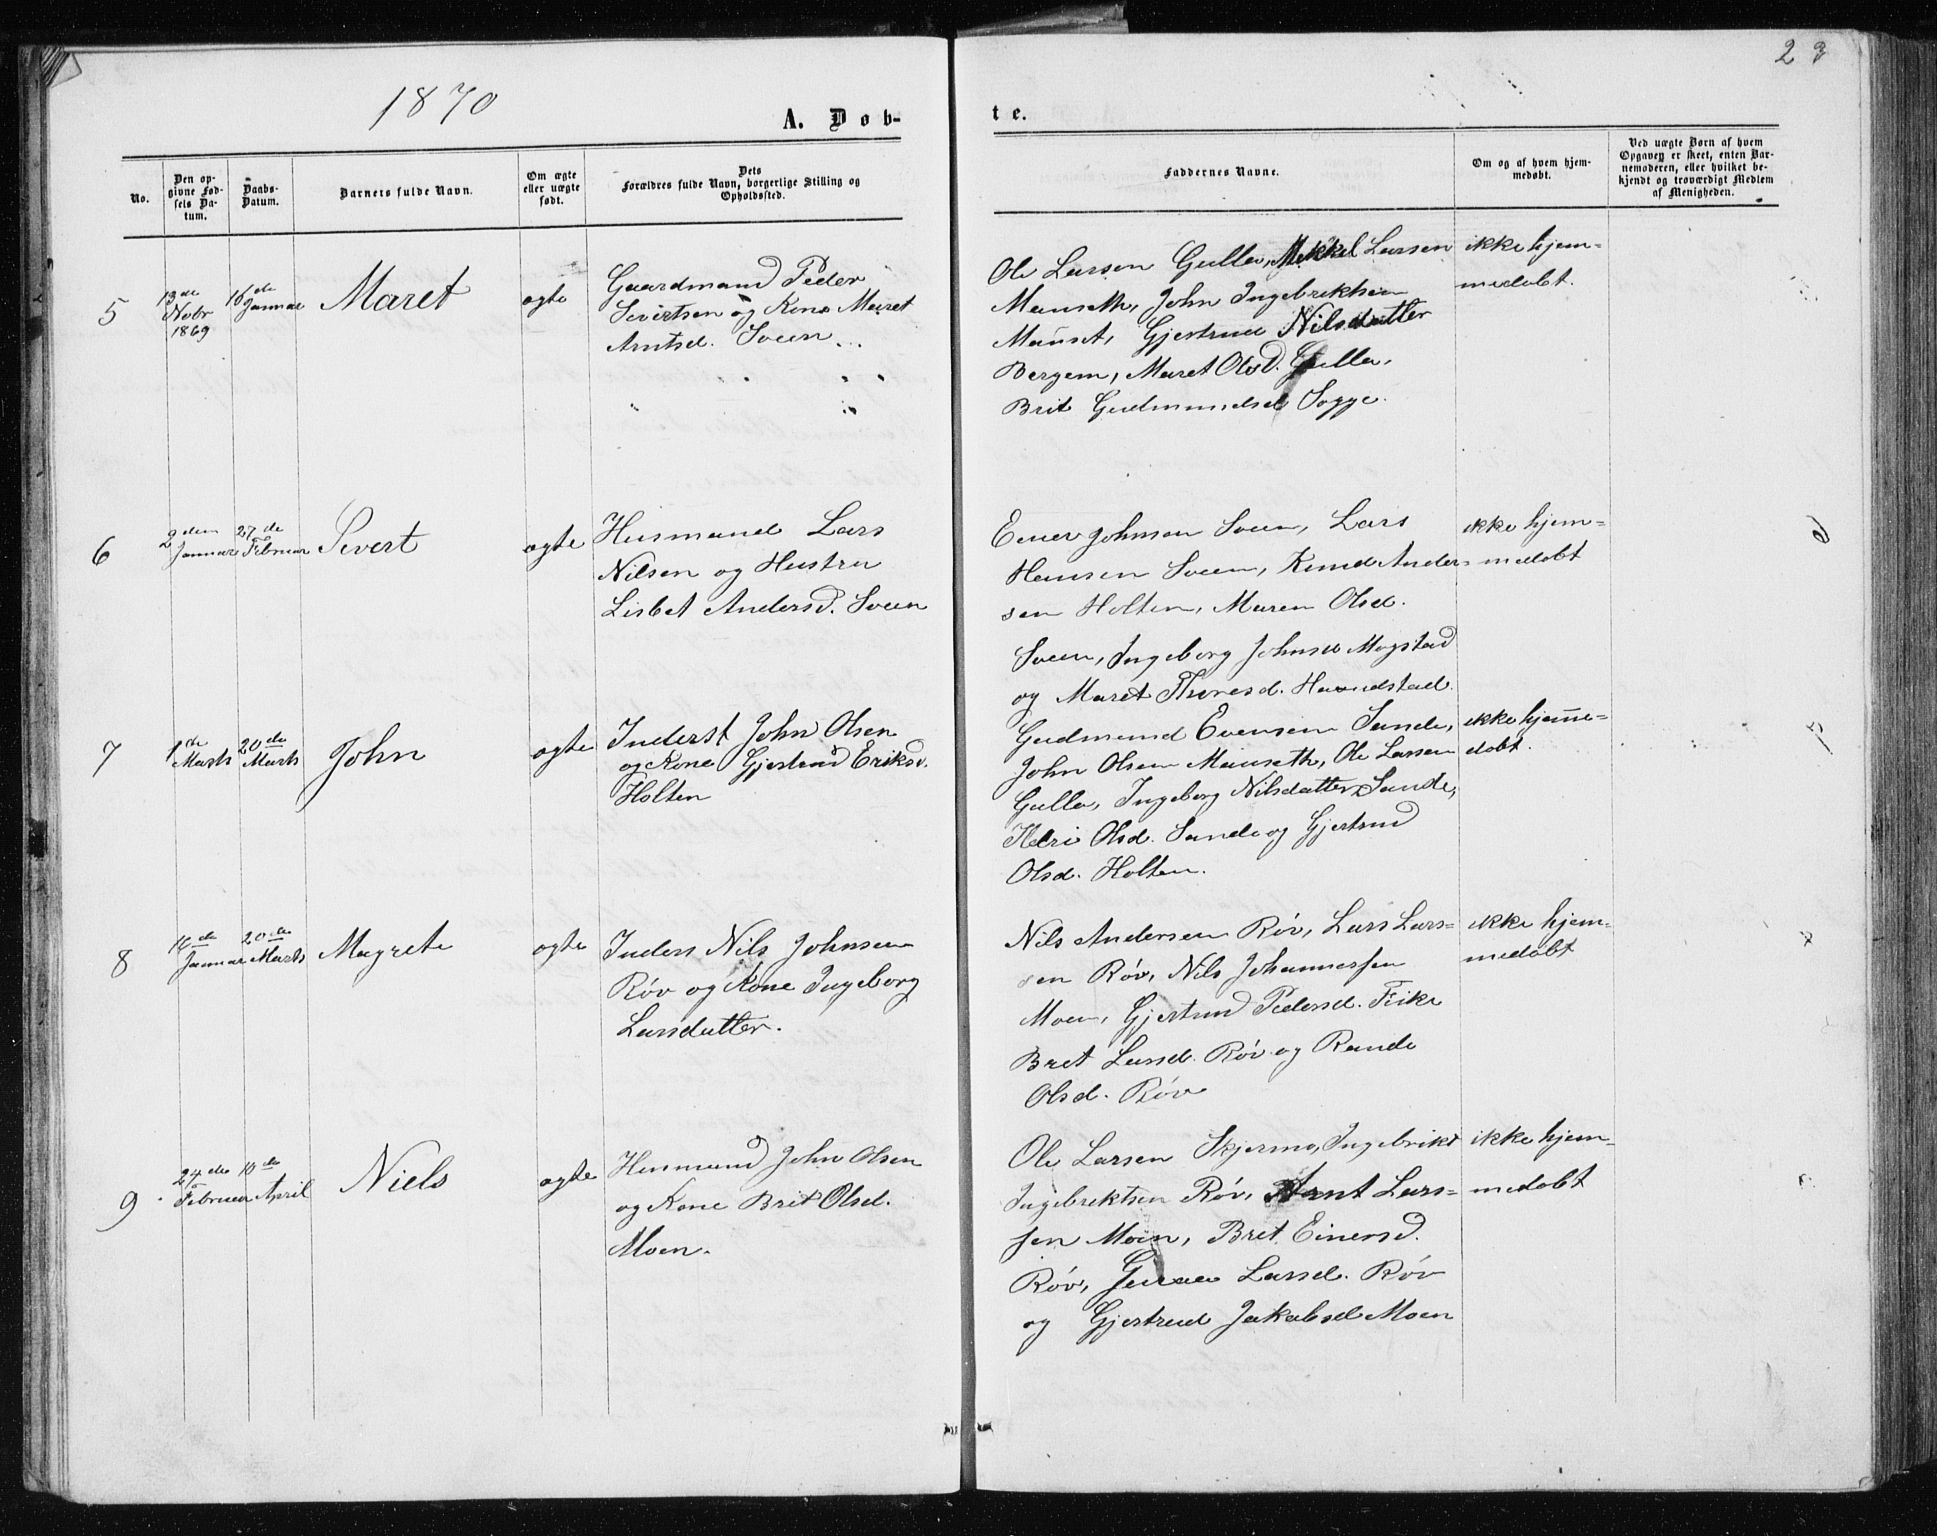 1870
23
A. Døb-
te.
No.
Den op-
givne Fød-
sels Da-
tum.
Daabs-
Datum.
Barnets fulde Navn.
Om ægte
eller uægte
født.
Dets
Forældres fulde Navn, borgerlige Stilling og
Opholdssted.
Faddernes Navne.
Om og af hvem hjem-
medøbt.
Ved uægte Børn af hvem
Opgaven er skeet, enten Bar-
nemoderen, eller hvilket be-
kjendt og troværdigt Medlem
af Menigheden.
5
13de
Nobr
1869
16de
Januar
Maret
ægte
Gaardmand Peder
Sivertsen og Kone Maret
Arntsd. Sveen
Ole Larsen Gulla, Mikkel Larsen
Mauseth, John Ingebriktsen
Mauset, Gjertrud Nilsdatter
Bergem, Maret Olsd. Gulla,
Brit Gudmundsd Sogge.
ikke hjem=
medøbt.
6
2den
Januar
27de
Februar
Sivert
ægte
Husmand Lars
Nilsen og Hustru
Lisbet Andersd. Sveen
Ener Johnsen Sveen, Lars
Hansen Sveen, Knud Ander=
sen Holten, Maren Olsd.
Sveen, Ingeborg Johnsd Mogstad
og Maret Thoresd. Haandstad
ikke hjem=
medøbt
6
7
1ste
Marts
20de
Marts
John
ægte
Inderst John Olsen
og Kone Gjertrud Eriksd.
Holten
Gudmund Evensen Sande,
John Olsen Mauseth, Ole Larsen
Gulla, Ingeborg Nilsdatter Sande,
Kari Olsd. Sande og Gjertrud
Olsd. Holten.
ikke hjem̄e=
døbt.
8
16de
Januar
20de
Marts
Magrete
ægte
Inders Nils Johnsen
Røv og Kone Ingeborg
Larsdatter.
Nils Andersen Røv, Lars Lars=
sen Røv, Nils Johannessen
Moen, Gjertrud Pedersd. Fiske
Bret Larsd. Røv og Rande
Olsd. Røv
ikke hjem=
medøbt
9
24de
Februar
10de
April
Niels
ægte
Husmand John Olsen
og Kone Brit Olsd.
Moen.
Ole Larsen Skjermo, Ingebrikt
Ingebrektsen Røv, Arnt Lars=
sen Moen, Bret Einersd.
Røv, Larsd. Røv
og Gjertrud Jakobsd Moen
ikke hjem=
medøbt